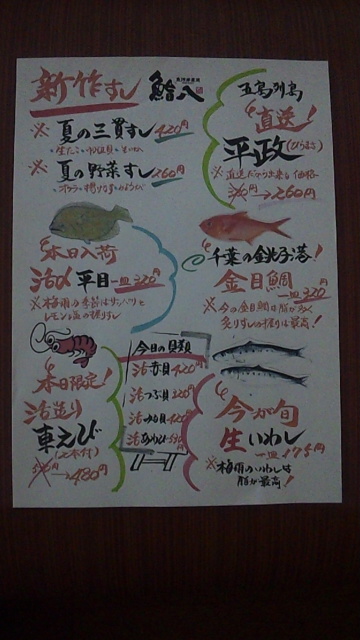 新作すし
鮨八
※夏の三貫すし 420円
※夏の野菜すし 260円
五島列島
直送!
平政(ひらまさ)
※直送だから出来る価格
→260円
本日入荷
活〆平目 一皿 320円
※梅雨の季節はサッパリと
レモン塩の握りすし
千葉の銚子港!
金目鯛
一皿 320円
※今の金目鯛は脂が多く
炙りすしの握りは最高!
本日限定!
活造り
車えび
(二本付)
→480円
今日の貝類
活赤貝 420円
活つぶ貝 320円
活みる貝 420円
活あわび 590円
今が旬
生いわし
一皿 175円
※梅雨のいわしは
脂が最高!